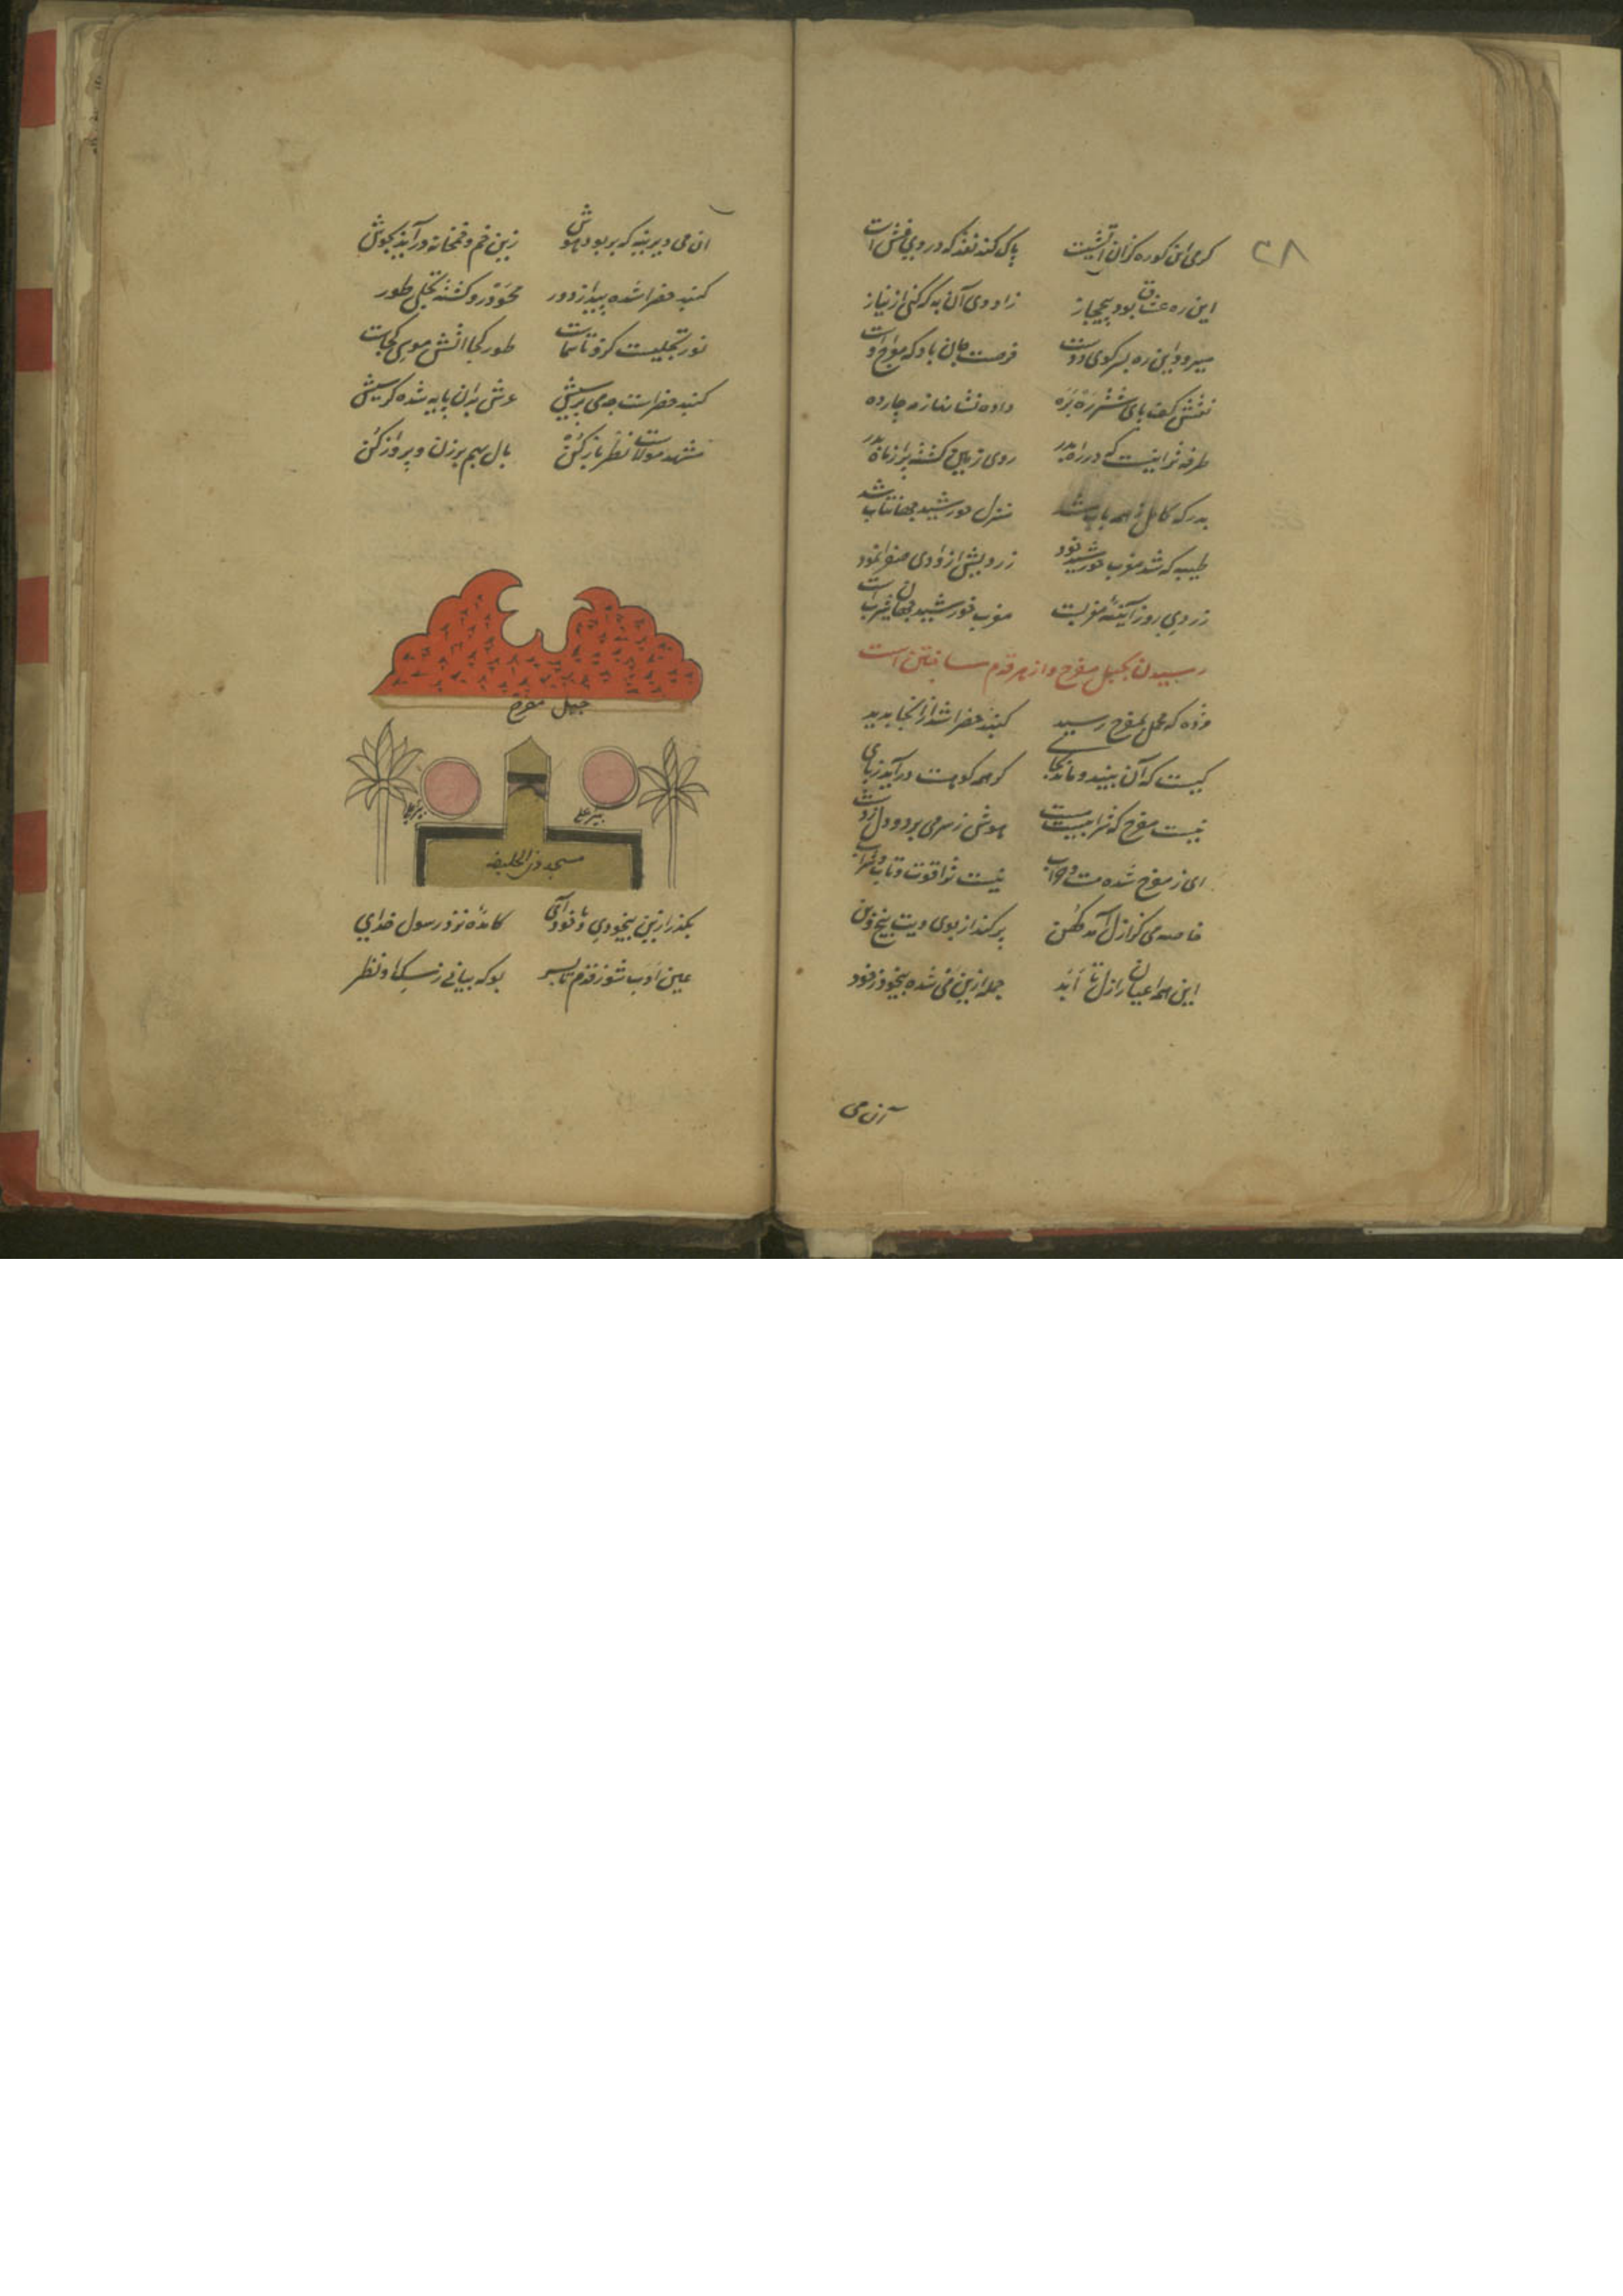 ۳۸
گرمی این کوره کزان آتشیست پاک کند نقد که در وی غش است
این ره عشاق بود بیمجاز زاد وی آن به که کنی از نیاز
میرود این ره بسر کوی دوست فرصت جان باد که
نقش کف پای شتر ره بره داده نشانها ز مه چارده
طرفه تر اینست که در راه بدر روی زمین گشته پر از ماه بدر
بدر که کامل ز همه باب شد منزل خورشید جهانتاب شد
طیبه که شد مغرب خورشید خود زردیش از وادی صفرا نمود
زردی روز آینهٔ مغربست مغرب خورشید جهان یثرب است
رسیدن بجبل مفرح و از سر قدم ساختن است
مژده که محمل بمفرح رسید گنبد خضرا شد از آنجا پدید
کیست که آن بیند و ماند بجای گر همه کوهست درآید ز پای
نیست مفرح که شرابیست هوش ز سر می برد و دل ز دست
ای ز مفرح شده مست و خراب نیست ترا قوت و تاب شراب
خاصه می کز ازل آمد کهن بر کند از بوی ویت بیخ و بن
این همه اعیان ز ازل تا ابد جمله ازین می شده بیخود ز خود
آن می
آن می دیرینه که بربود هوش زین خم و خمخانه درآید بجوش
گنبد خضرا شده پیدا ز دور محو درو گشته تجلی طور
نور تجلیست کزو تا سماست طور کجا آتش موسی کجاست
گنبد خضراست عرش بدان پایه شده کرسیش
مشهد مولاست نظر باز کن بال بهم بر زن و پرواز کن
جبل مفرح
بیر علی
بیر علی
مسجد ذی الحلیفه
بگذر ازین بیخودی و با خود آی کامدهٔ نزد رسول خدای
عین ادب شو ز قدم تا بسر بو که بیابی ز سگ او نظر